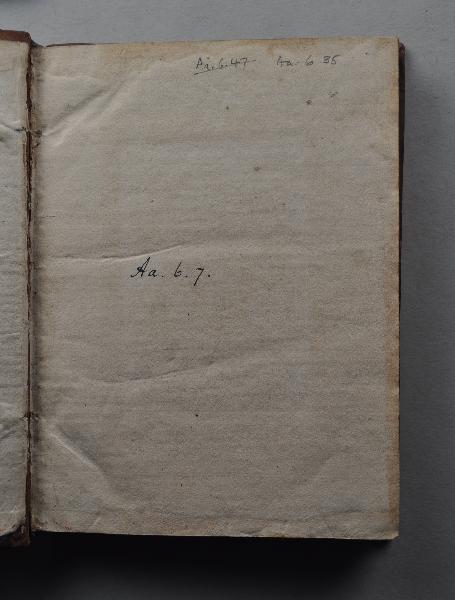 Aa. 6. 47 Aa. 6 35
Aa. 6. 7.